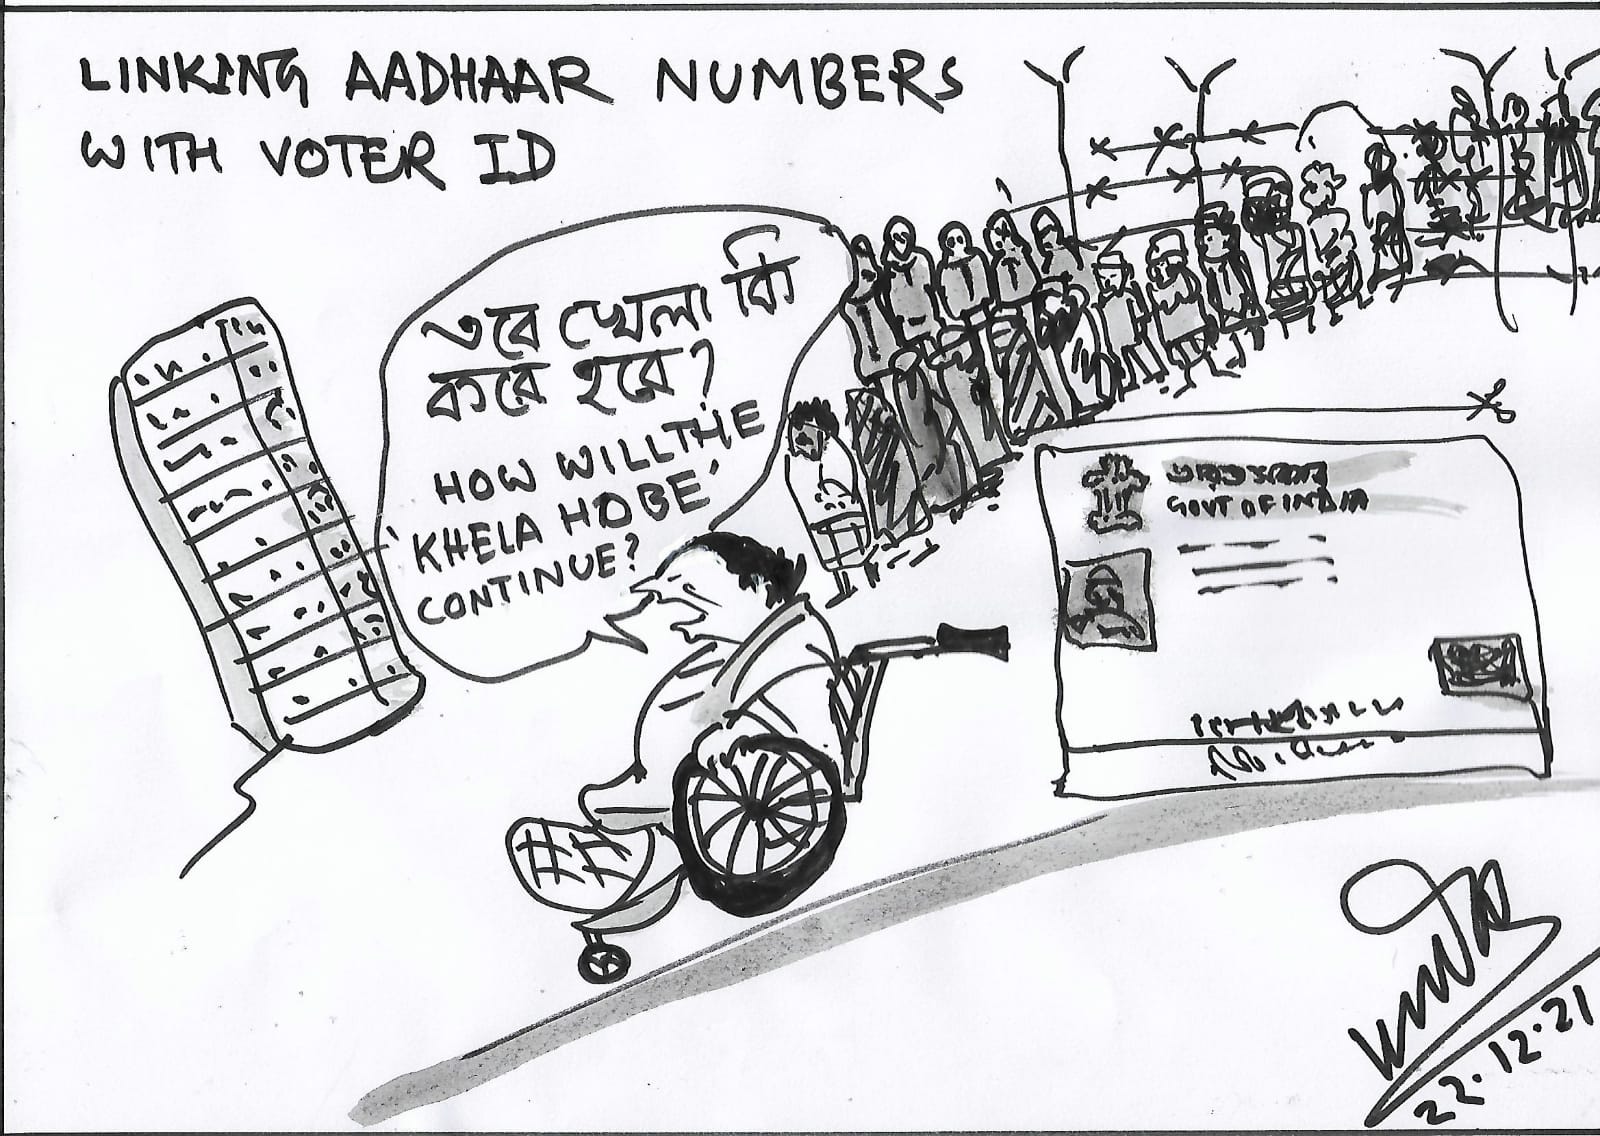 LINKING AADHAAR NUMBERS
WITH VOTER ID
তবে খেলা কি
করে হবে?
HOW WILL THE
'KHELA HOBE'
CONTINUE?
ভারত সরকার
GOVT OF INDIA
22.12.21